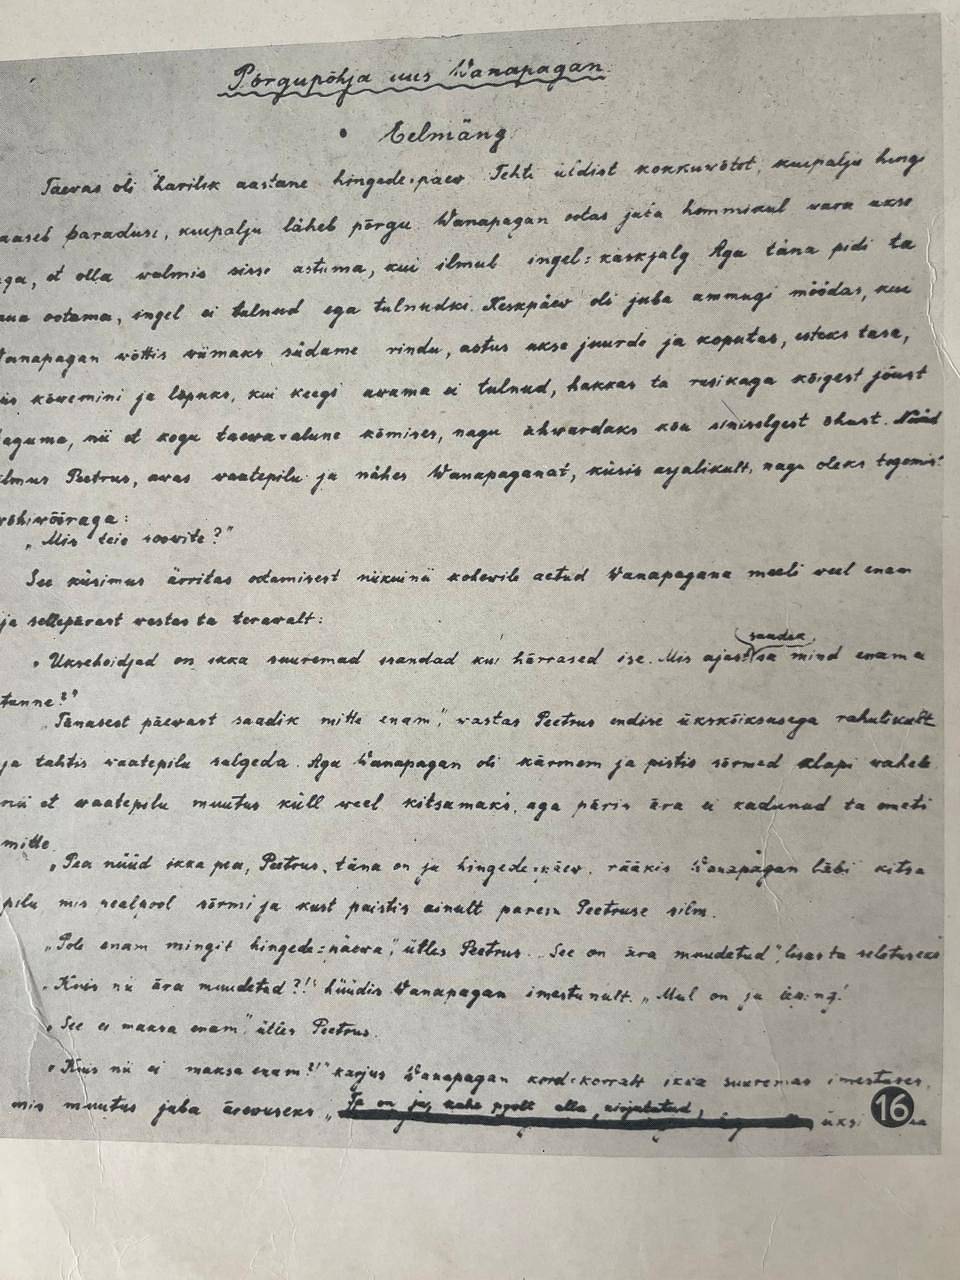 Põrgupõhja uus Wanapagan
Eelmäng
Taevas oli harilik aastane hingede-päev. Tehti üldist kokkuvõtet, kuipalju hingi
paaseb paradiisi, kuipalju läheb põrgu. Wanapagan ootas juba hommikul vara ukse
aga, et olla walmis sisse astuma, kui ilmub ingel-käskjalg. Aga täna pidi ta
aua ootama, ingel ei tulnud ega tulnudki. Keskpäew oli juba ammugi möödas, kui
Wanapagan wõttis wiimaks südame rindu, astus ukse juurde ja koputas, esteks tasa,
iis kõwemini ja lõpuks, kui keegi awama ei tulnud, hakkas ta rusikaga kõigest jõust
taguma, nii et kogu taewa-alune kõmises, nagu ähwardaks kõu sinisélgest õhust. Nüüd
ilmus Peetrus, awas waatepilu ja nähes Wanapaganat, küsis asjalikult, nagu oleks tegemist
wõhiwõõraga:
„Mis teie soowite?"
See küsimus ärritas ootamisest niikuinii kohewile aetud Wanapagana meeli weel enam
ja sellepärast vastas ta terawalt:
„Uksehoidjad on ikka suuremad isandad kui härrased ise. Mis ajast saadik sa mind enam ei
tunne?"
„Tänasest päewast saadik mitte enam," vastas Peetrus endise ükskõiksusega rahulikult
ja tahtis vaatepilu sulgeda. Aga Wanapagan oli kärmem ja pistis sõrmed klapi wahele
nii et waatepilu muutus küll weel kitsamaks, aga päris ära ei kadunud ta ometi
mitte.
„Pea nüüd ikka pea, Peetrus, täna on ju hingede-päew, rääkis Wanapagan läbi kitsa
pilu mis sealpool sõrmi ja kust paistis ainult parem Peetruse silm.
„Pole enam mingit hingede-päewa," ütles Peetrus. „See on ära muudetud", lisas ta seletuseks
„Kuis nii ära muudetud?!" hüüdis Wanapagan imestunult. „Mul on ju leping!
„See ei maksa enam", ütles Peetrus.
„Kuis nii ei maksa enam?!" karjus Wanapagan kord-korralt ikka suuremas imestuses,
mis muutus juba ärewuseks „Ta on ju, kahe poolt alla kirjutatud,
16